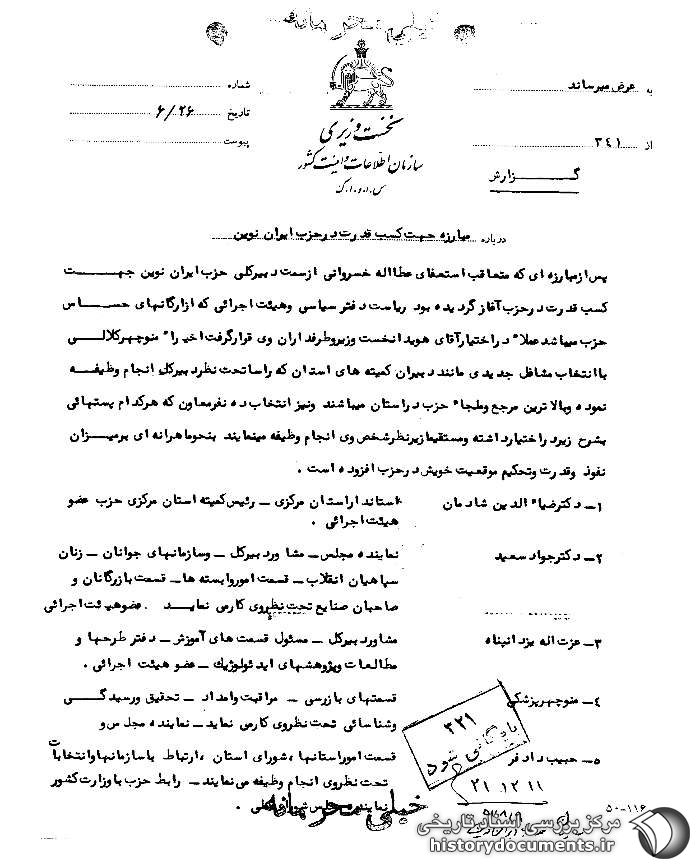 خیلی محرمانه
به عرض میرساند
شماره
از ۳۴۱
تاریخ ۶/۲۶
پیوست
نخست وزیری
سازمان اطلاعات و امنیت کشور
س.ا.و.ا.ک
گزارش
درباره مبارزه جهت کسب قدرت در حزب ایران نوین
پس از مبارزه ای که متعاقب استعفای عطااله خسروانی از سمت دبیرکلی حزب ایران نوین جهت
کسب قدرت در حزب آغاز گردیده بود ریاست دفتر سیاسی وهیئت اجرائی که ازارگانهای حساس
حزب میباشد عملا" در اختیار آقای هویدا نخست وزیر و طرفداران وی قرارگرفت اخیرا" منوچهر کلالی
با انتخاب مشاغل جدیدی مانند دبیران کمیته های استان که راسا تحت نظر دبیرکل انجام وظیفه
نموده وبالا ترین مرجع وملجاء حزب در استان میباشند ونیز انتخاب ده نفر معاون که هرکدام پستهائی
بشرح زیر در اختیار داشته ومستقیما زیرنظر شخص وی انجام وظیفه مینمایند بنحو ماهرانه ای بر میزان
نفوذ وقدرت وتحکیم موقعیت خویش در حزب افزوده است .
۱ـ دکتر ضیاء الدین شادمان استاندار استان مرکزی ـ رئیس کمیته استان مرکزی حزب عضو
هیئت اجرائی .
۲ـ دکتر جواد سعید نماینده مجلس ـ مشاور دبیرکل ـ وسازمانهای جوانان ـ زنان
سپاهیان انقلاب ـ قسمت امور وابسته ها ـ قسمت بازرگانان و
صاحبان صنایع تحت نظر وی کار می نماید . عضو هیئت اجرائی
۳ـ عزت اله یزدانپناه مشاور دبیرکل ـ مسئول قسمت های آموزش ـ دفتر طرحها و
مطالعات وپژوهشهای ایدئولوژیک ـ عضو هیئت اجرائی .
۴ـ منوچهر پزشکی قسمتهای بازرسی ـ مراقبت وامداد ـ تحقیق ورسیدگی
وشناسائی تحت نظر وی کار می نماید ـ نماینده مجلس و
۵ـ حبیب دادفر قسمت امور استانها ، شورای استان ، ارتباط با سازمانها وانتخابات
تحت نظر وی انجام وظیفه می نمایند ـ رابط حزب با وزارت کشور
نماینده مجلس شورای ملی .
۳۲۱
بایگانی شود
۲۱.۱۲.۱۱
۵۰-۱۱۶
خیلی محرمانه
مرکز بررسی اسناد تاریخی
historydocuments.ir